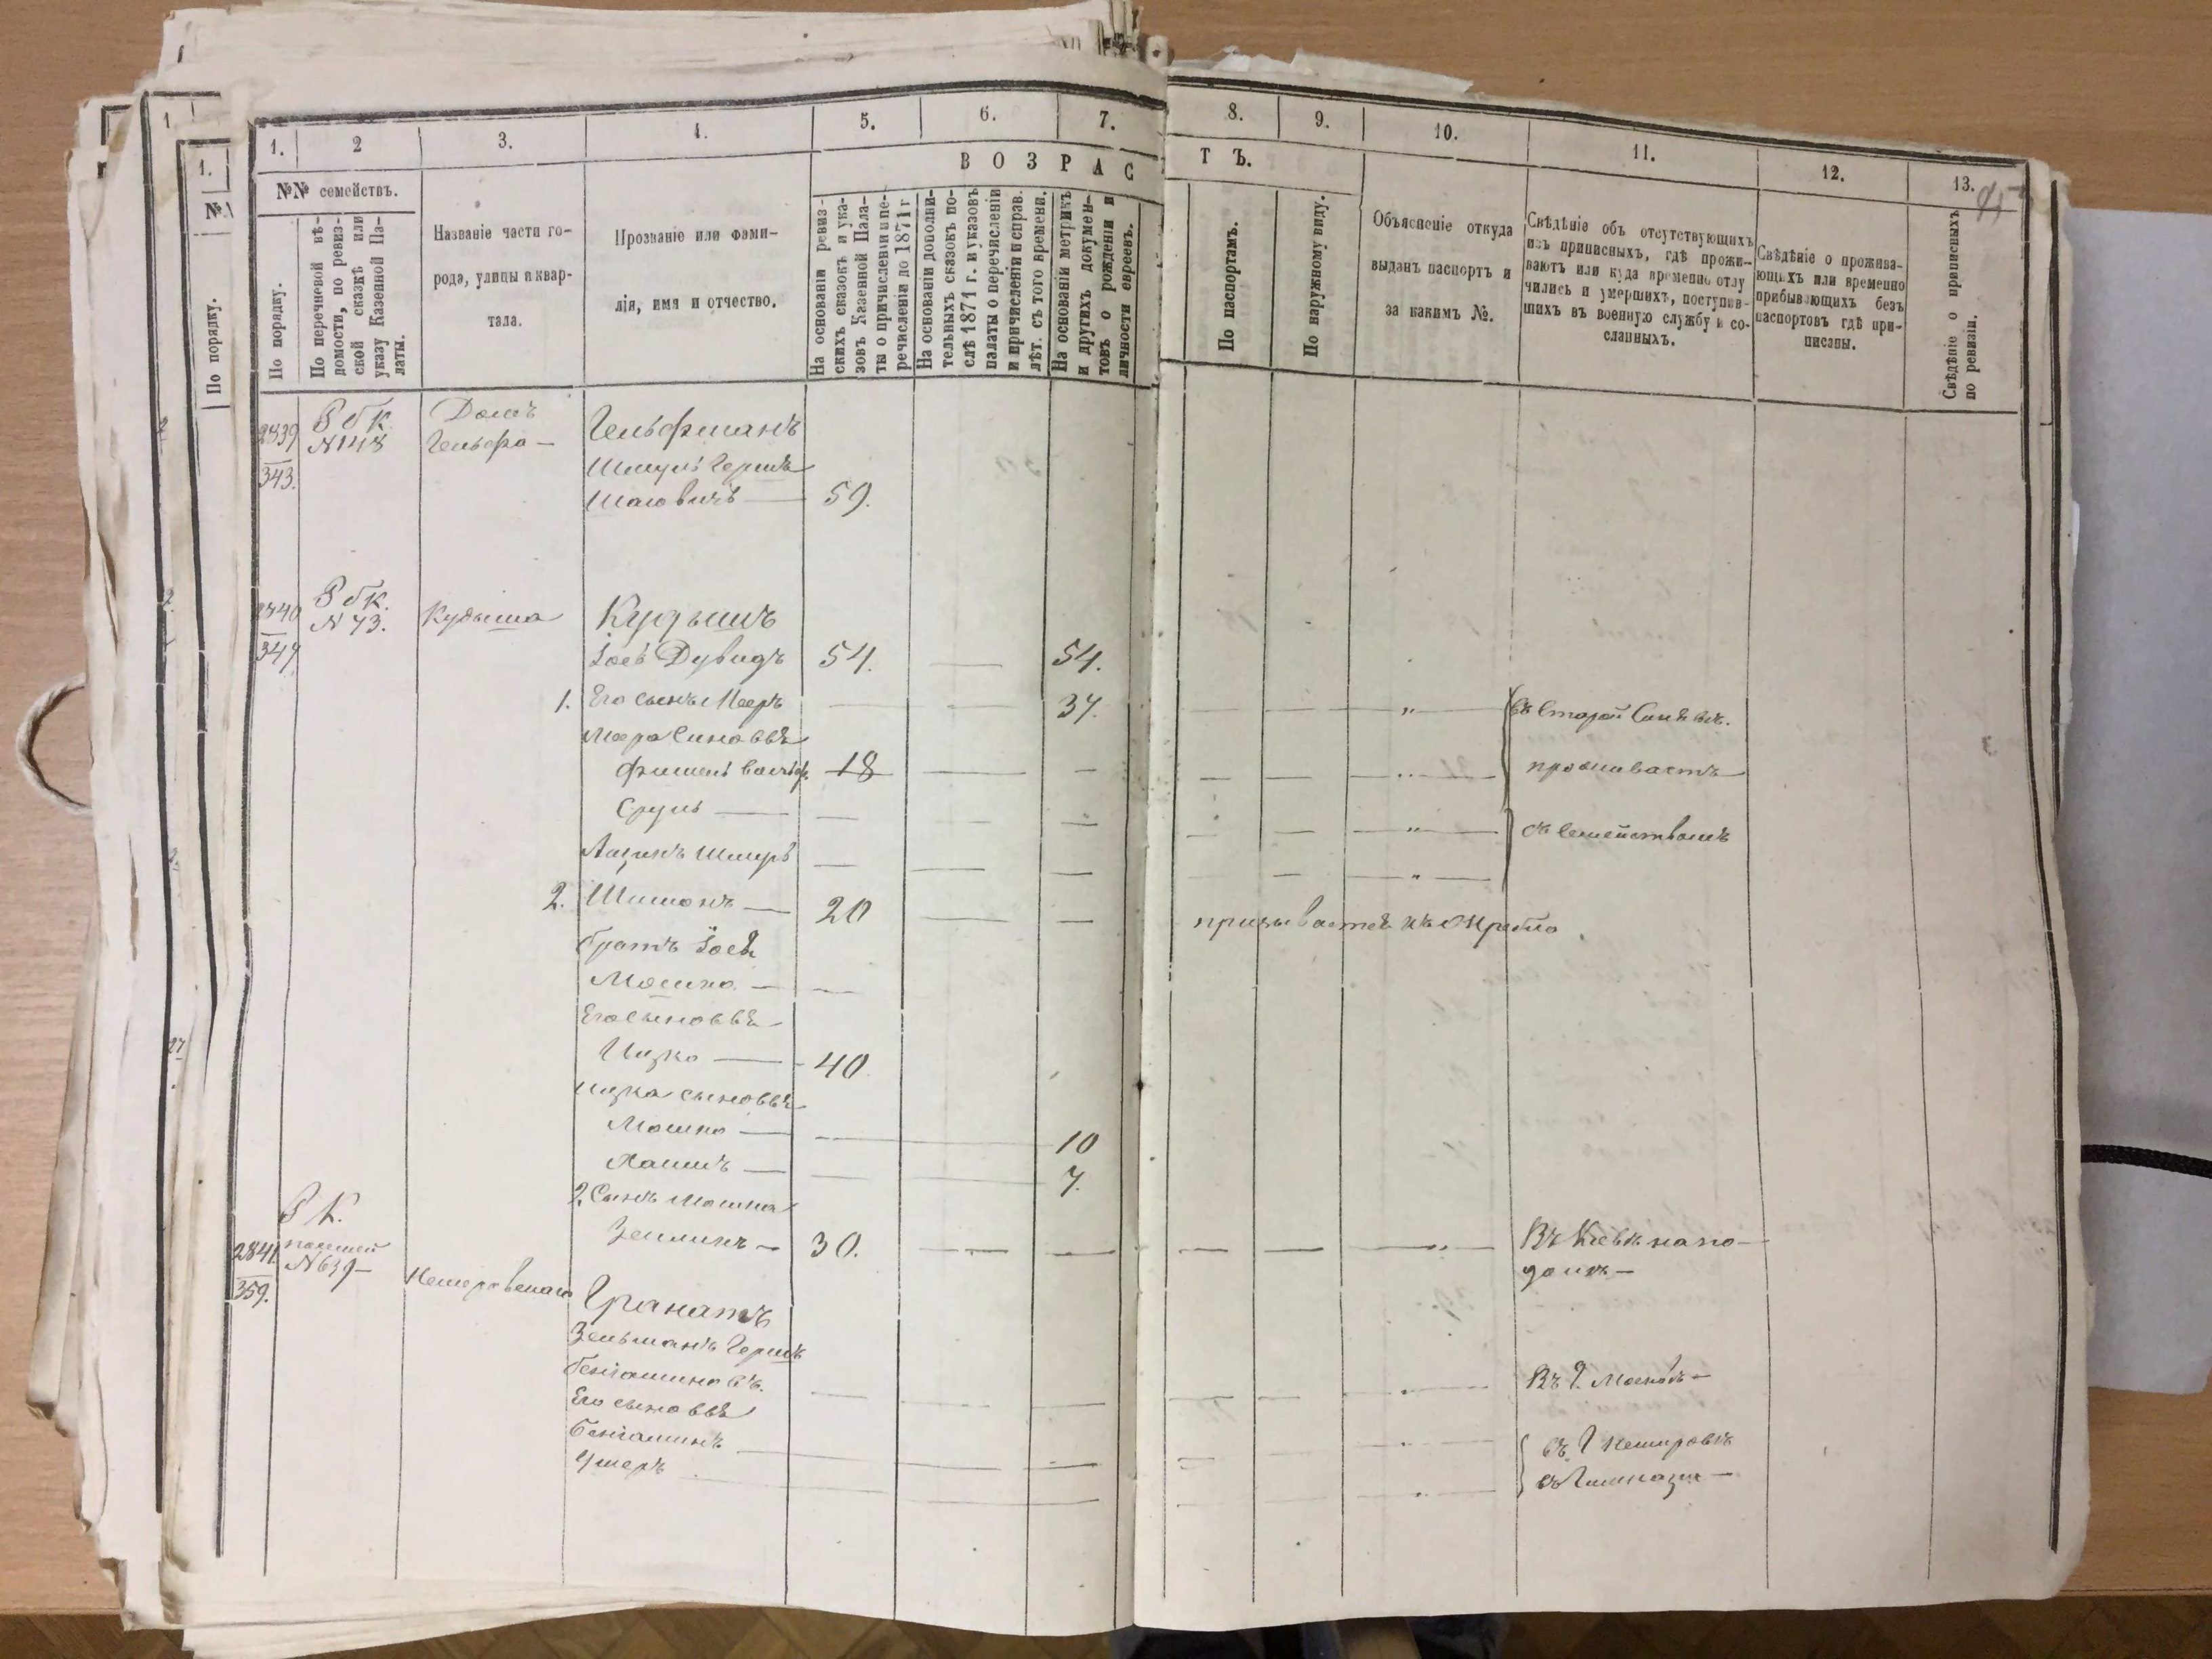 1.
2
3.
4.
5.
6.
7.
8.
9.
10.
11.
12.
13.
ВОЗРАС
ТЪ.
№№ семействъ.
По порядку.
По перечневой вѣ-
домости, по ревиз-
ской сказкѣ или
указу Казенной Па-
латы.
Названіе части го-
рода, улицы и квар-
тала.
Прозваніе или фами-
лія, имя и отчество.
На основаніи ревиз-
скихъ сказокъ и ука-
зовъ Казенной Пала-
ты о причисленіи пе-
речисленіи до 1871 г
На основаніи дополни-
тельныхъ сказокъ по-
слѣ 1871 г. и указовъ
палаты о перечисленіи
и причисленіи и справ.
лѣт. съ того времени.
На основаніи метрикъ
и другихъ докумен-
товъ о рожденіи и
личности евреевъ.
По паспортамъ.
По наружному виду.
Объясненіе откуда
выданъ паспортъ и
за какимъ №.
Свѣдѣніе объ отсутствующихъ
изъ приписныхъ, гдѣ прожи-
ваютъ или куда временно отлу
чились и умершихъ, поступив-
шихъ въ военную службу и со-
сланныхъ.
Свѣдѣніе о прожива-
ющихъ или временно
прибывающихъ безъ
паспортовъ гдѣ при-
писаны.
Свѣдѣніе о приписныхъ
по ревизіи.
1.
1.
По порядку.
2839
343.
N 148
Домъ
Гельфа—
Гельфманъ
Шмуль Герш
Шаювичъ — 59.
2840
N 73.
Кудыша
Кудышъ
Іось Дувидъ 54. — 54.
1. Его сынъ Мееръ — — 37. — — " — въ Старой Синявѣ.
Меера Сыновья
Фишель Вольф 18 — — — — " — проживаетъ
Сруль — — — — — " — съ семействомъ
Айзикъ Шмуль — — — — — " —
2. Шимонъ — 20 — — призывается къ
братъ Іося
Мошко — —
Его сыновья
Ицко — 40
Ицка сыновья
Мошко — — 10
Хаимъ — — 7.
2. Сынъ Мошка
Зельманъ — 30. — — — — " В Кіевѣ на по-
долѣ —
2841.
359.
N 639—
Немировскаго
Гранатъ
Зельманъ Герш
Беніаминовъ. — — — — — Въ г. Москвѣ —
Его сыновья
Беніаминъ — — — — — въ г Немировѣ
Ушеръ — — — — въ Гимназіи —